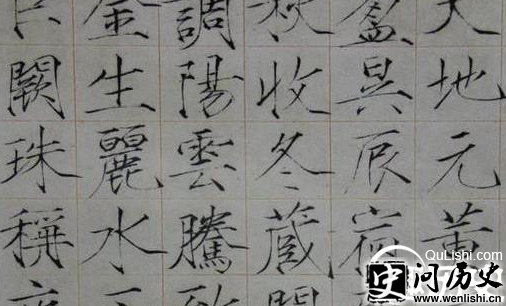 天地元黃
盈昃辰宿
秋收冬藏閏
調陽雲騰致
金生麗水玉
巨闕珠稱夜
QuLishi.com
问历史
www.wenlishi.cn